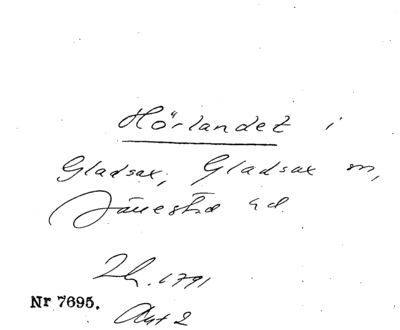 Hörlandet i
Gladsax, Gladsax sn,
Järrestad hd.
Lh. 6791
Nr 7695.
Akt 2